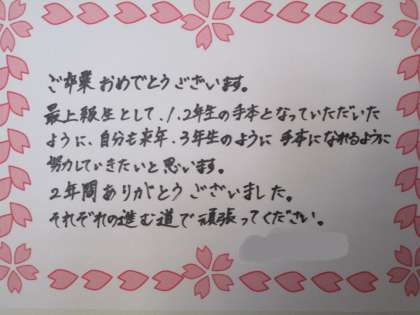 ご卒業おめでとうございます。
最上級生として、1、2年生の手本となっていただいた
ように、自分も来年、3年生のように手本になれるように
努力していきたいと思います。
2年間ありがとうございました。
それぞれの進む道で頑張ってください。